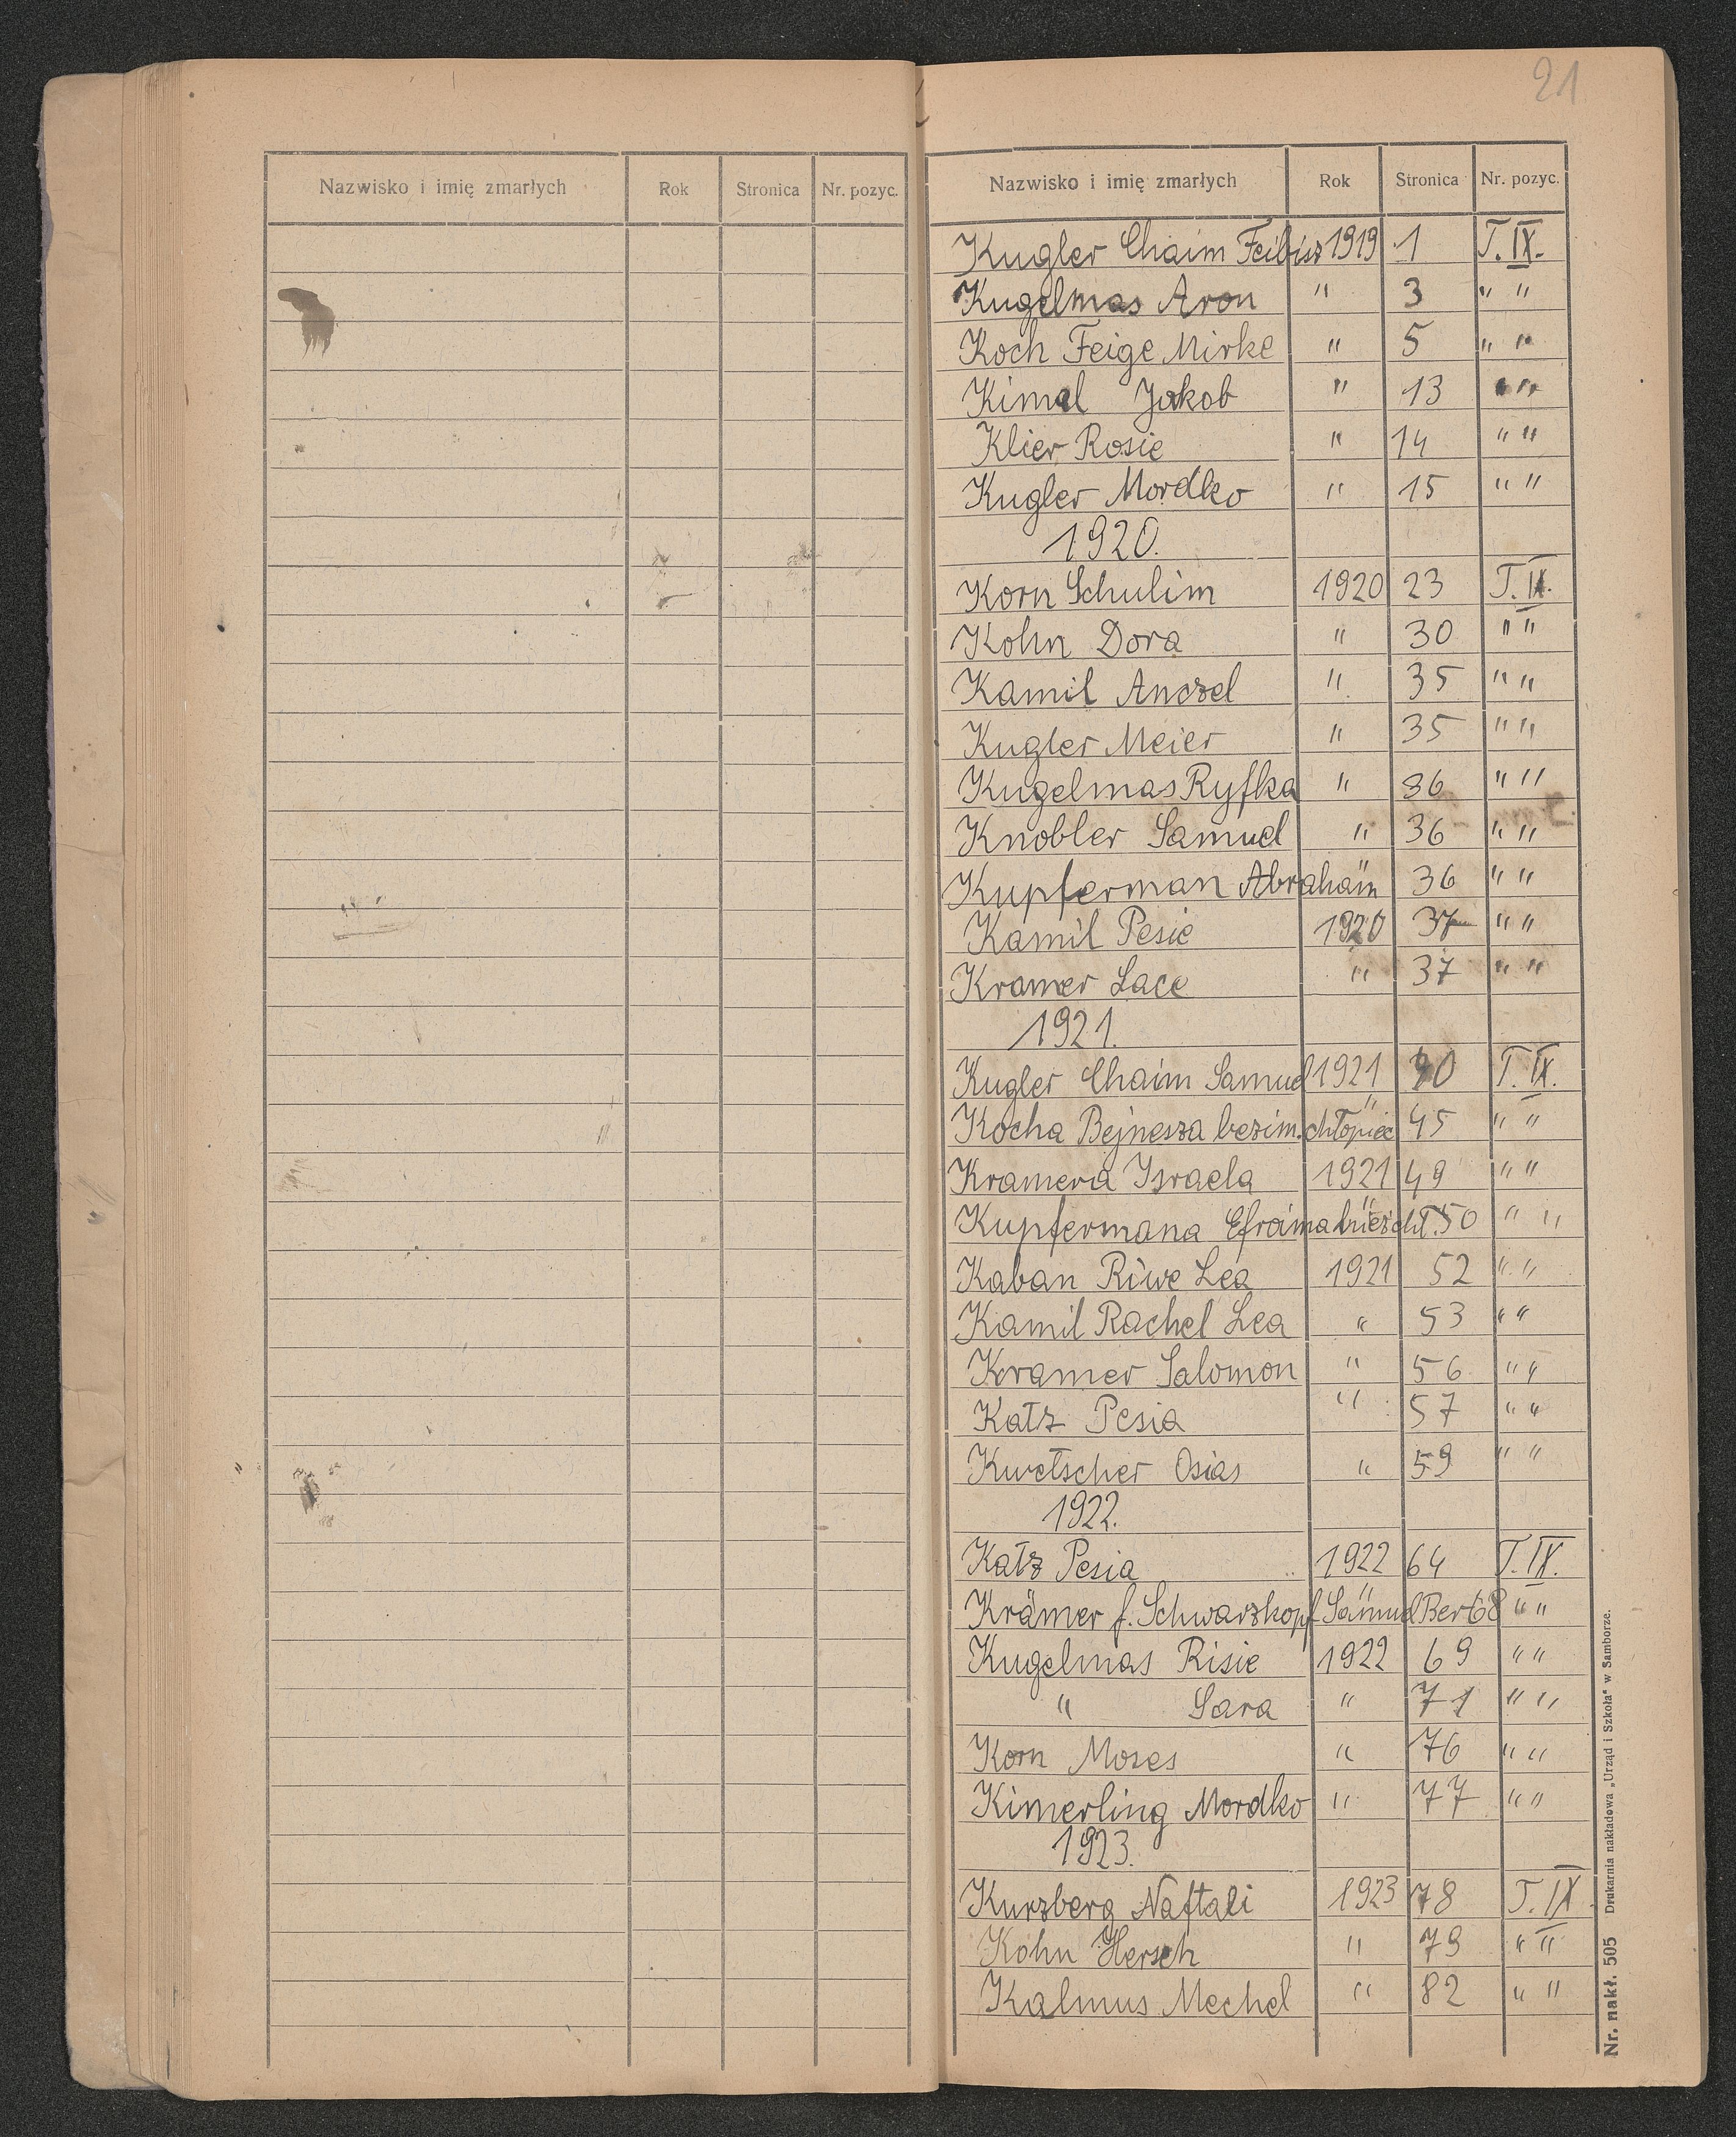 21
Nazwisko i imię zmarłych Rok Stronica Nr. pozyc.
Nazwisko i imię zmarłych Rok Stronica Nr. pozyc.
Kugler Chaim Feibisz 1919 1 T. IX.
Kugelmas Aron " 3 " "
Koch Feige Mirke " 5 " "
Kimal Jakob " 13 " "
Klier Rosie " 14 " "
Kugler Mordko " 15 " "
1920.
Korn Schulim 1920 23 T. IX.
Kohn Dora " 30 " "
Kamil Anczel " 35 " "
Kugler Meier " 35 " "
Kugelmas Ryfka " 36 " "
Knobler Samuel " 36 " "
Kupferman Abraham " 36 " "
Kamil Pesie 1920 37 " "
Kramer Lace " 37 " "
1921.
Kugler Chaim Samuel 1921 40 T. IX.
Kocha Bejnesza bezim. chłopiec " 45 " "
Kramera Israela 1921 49 " "
Kupfermana Efroima " 50 " "
Kaban Riwe Lea 1921 52 " "
Kamil Rachel Lea " 53 " "
Kramer Salomon " 56 " "
Katz Pesia " 57 " "
Kwetscher Osias " 59 " "
1922.
Katz Pesia 1922 64 T. IX.
Krämer f. Schwarzkopf Samuel Ber " 68 " "
Kugelmas Risie 1922 69 " "
" Sara " 71 " "
Korn Moses " 76 " "
Kimerling Mordko " 77 " "
1923.
Kurzberg Naftali 1923 78 T. IX.
Kohn Hersch " 79 " "
Kalmus Mechel " 82 " "
Nr. nakł. 505 Drukarnia nakładowa „Urząd i Szkoła" w Samborze.